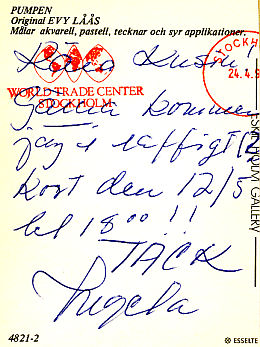 PUMPEN
Original EVY LÅÅS
Målar akvarell, pastell, tecknar och syr applikationer.
Kära
STOCKHO
24.4.9
WORLD TRADE CENTER
STOCKHOLM
Gärna kommer
jag e
kort den 12/5
kl 18⁰⁰ !!
TACK
Angela
HOLM GALLERY
4821-2
⊗ ESSELTE